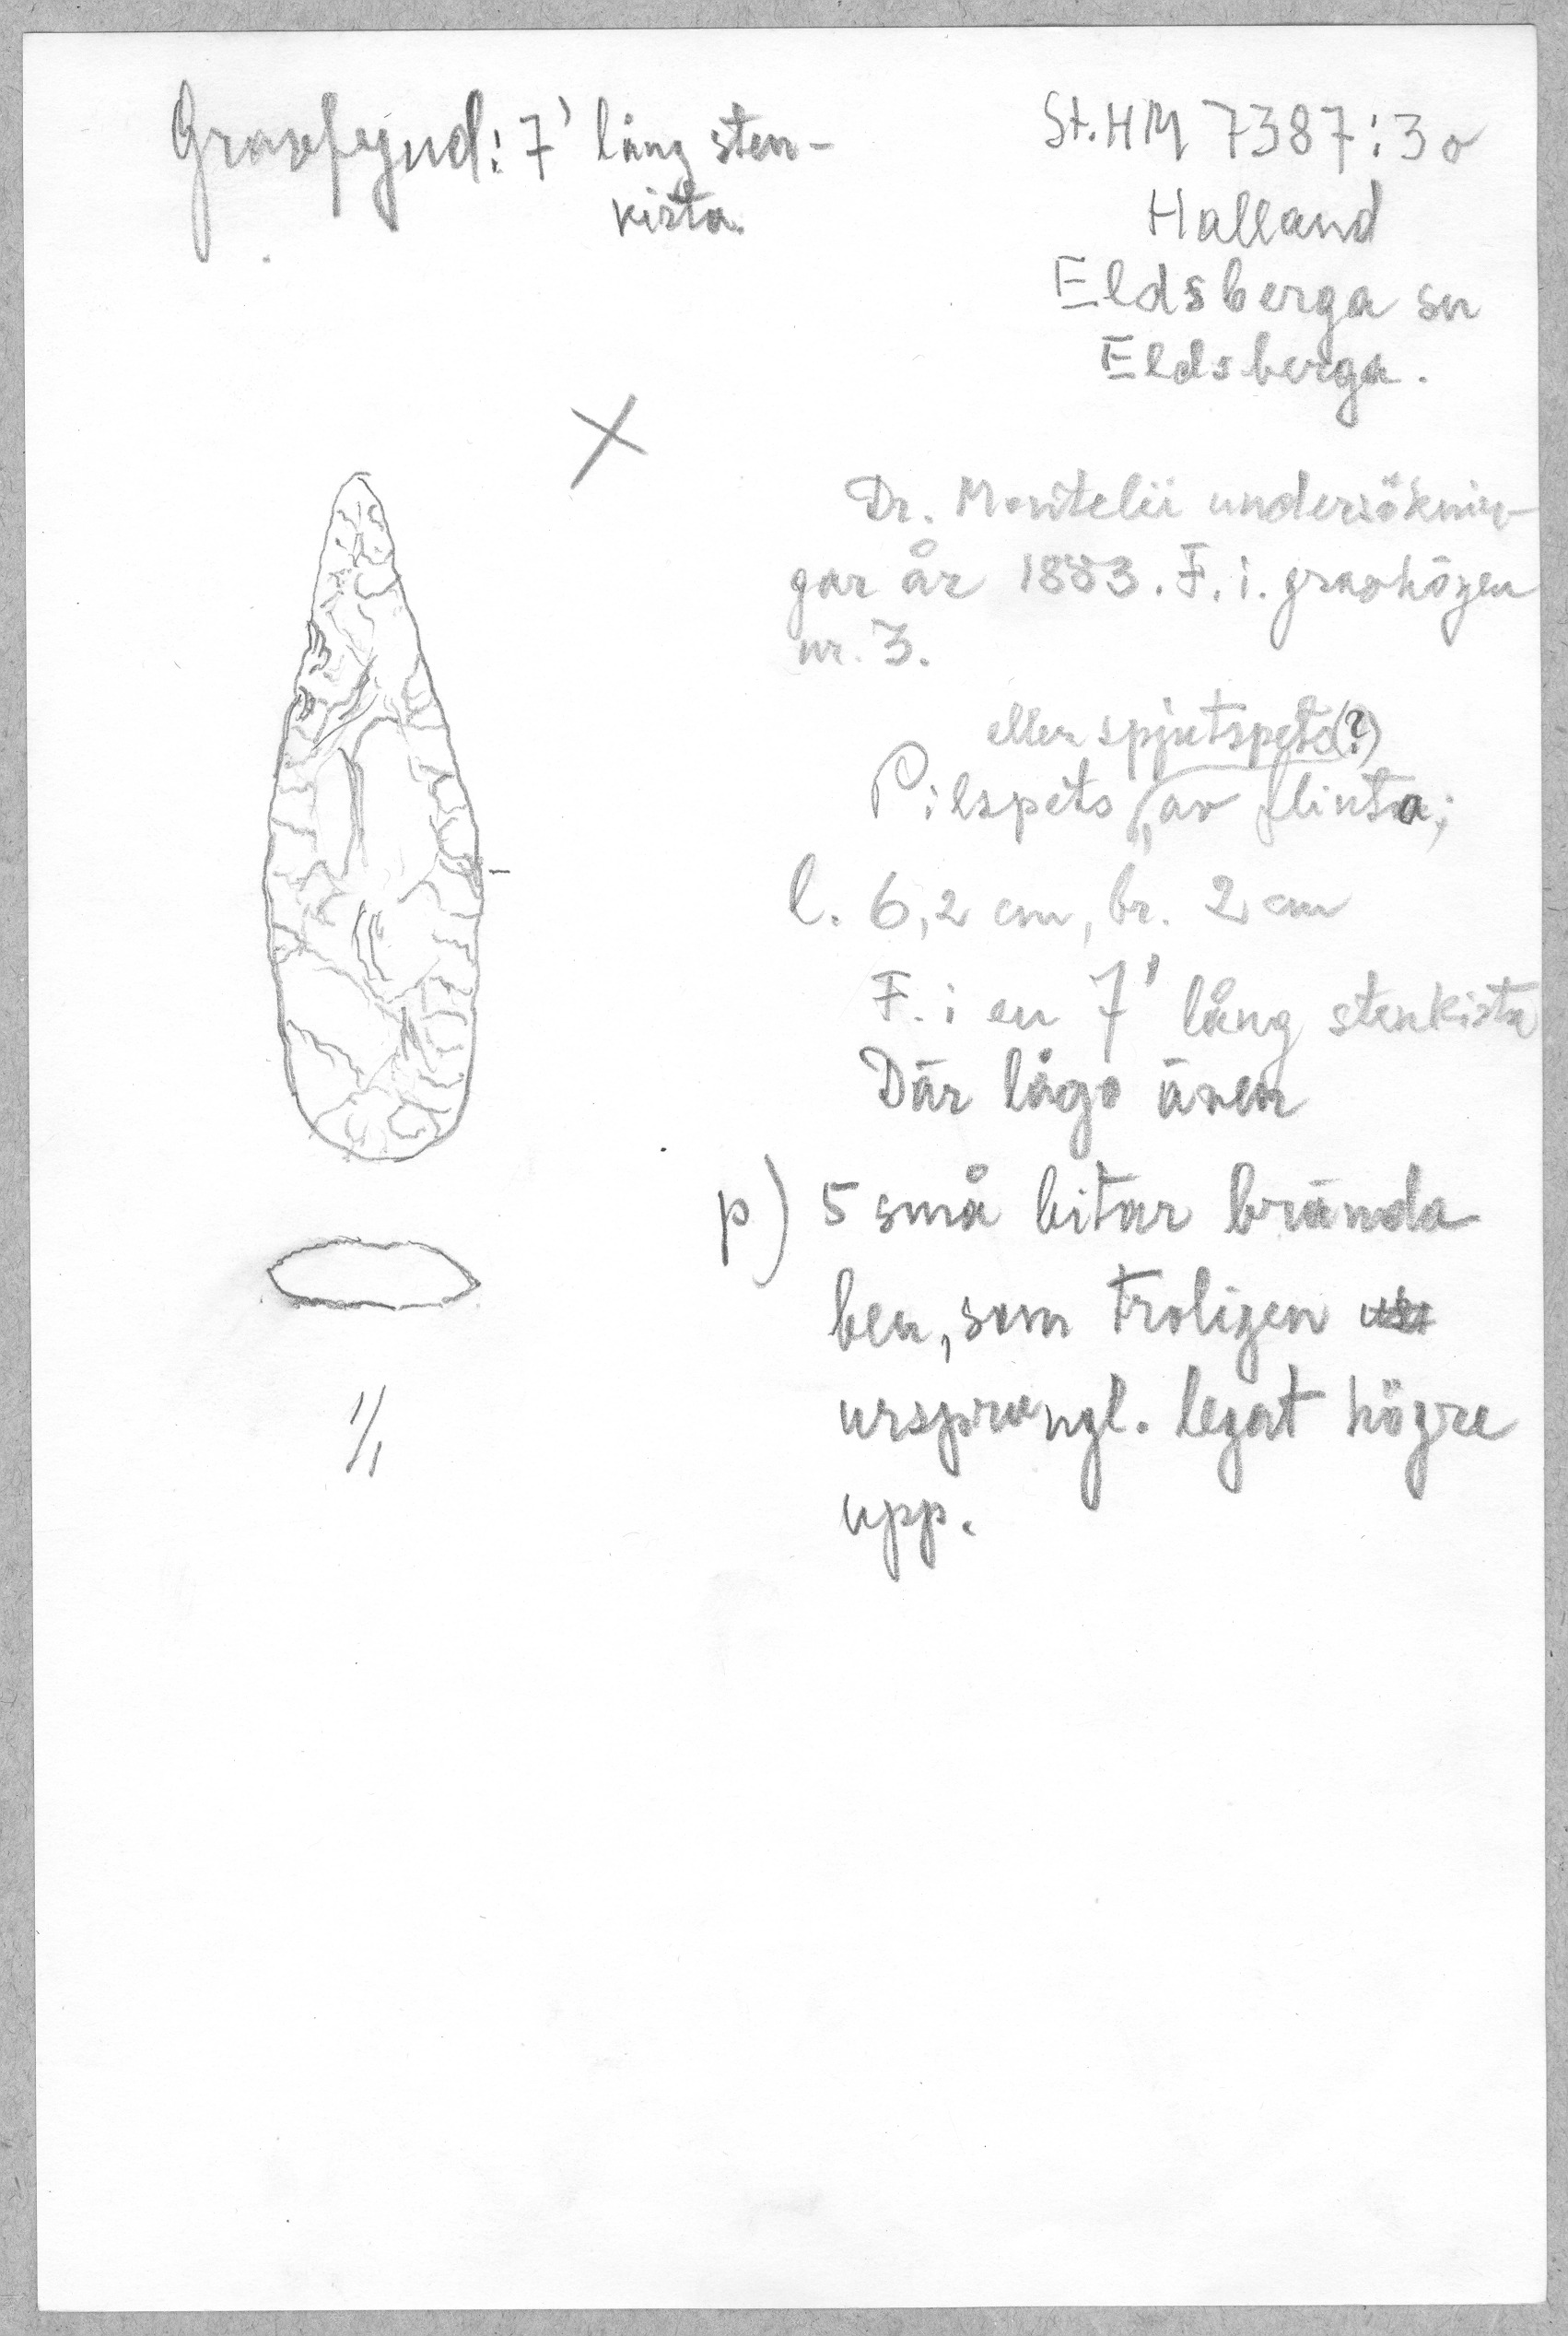 Gravfynd: 7' lång sten-
kista.
St. HM 7387:3o
Halland
Eldsberga sn
Eldsberga.
Dr. Montelii undersöknin-
gar år 1883. F. i. gravhögen
nr. 3.
eller spjutspets(?)
Pilspets, av flinta;
l. 6,2 cm, br. 2 cm
F. i en 7' lång stenkista
Där lågo även
p) 5 små bitar brända
ben, som troligen
ursprungl. legat högre
upp.
1/1